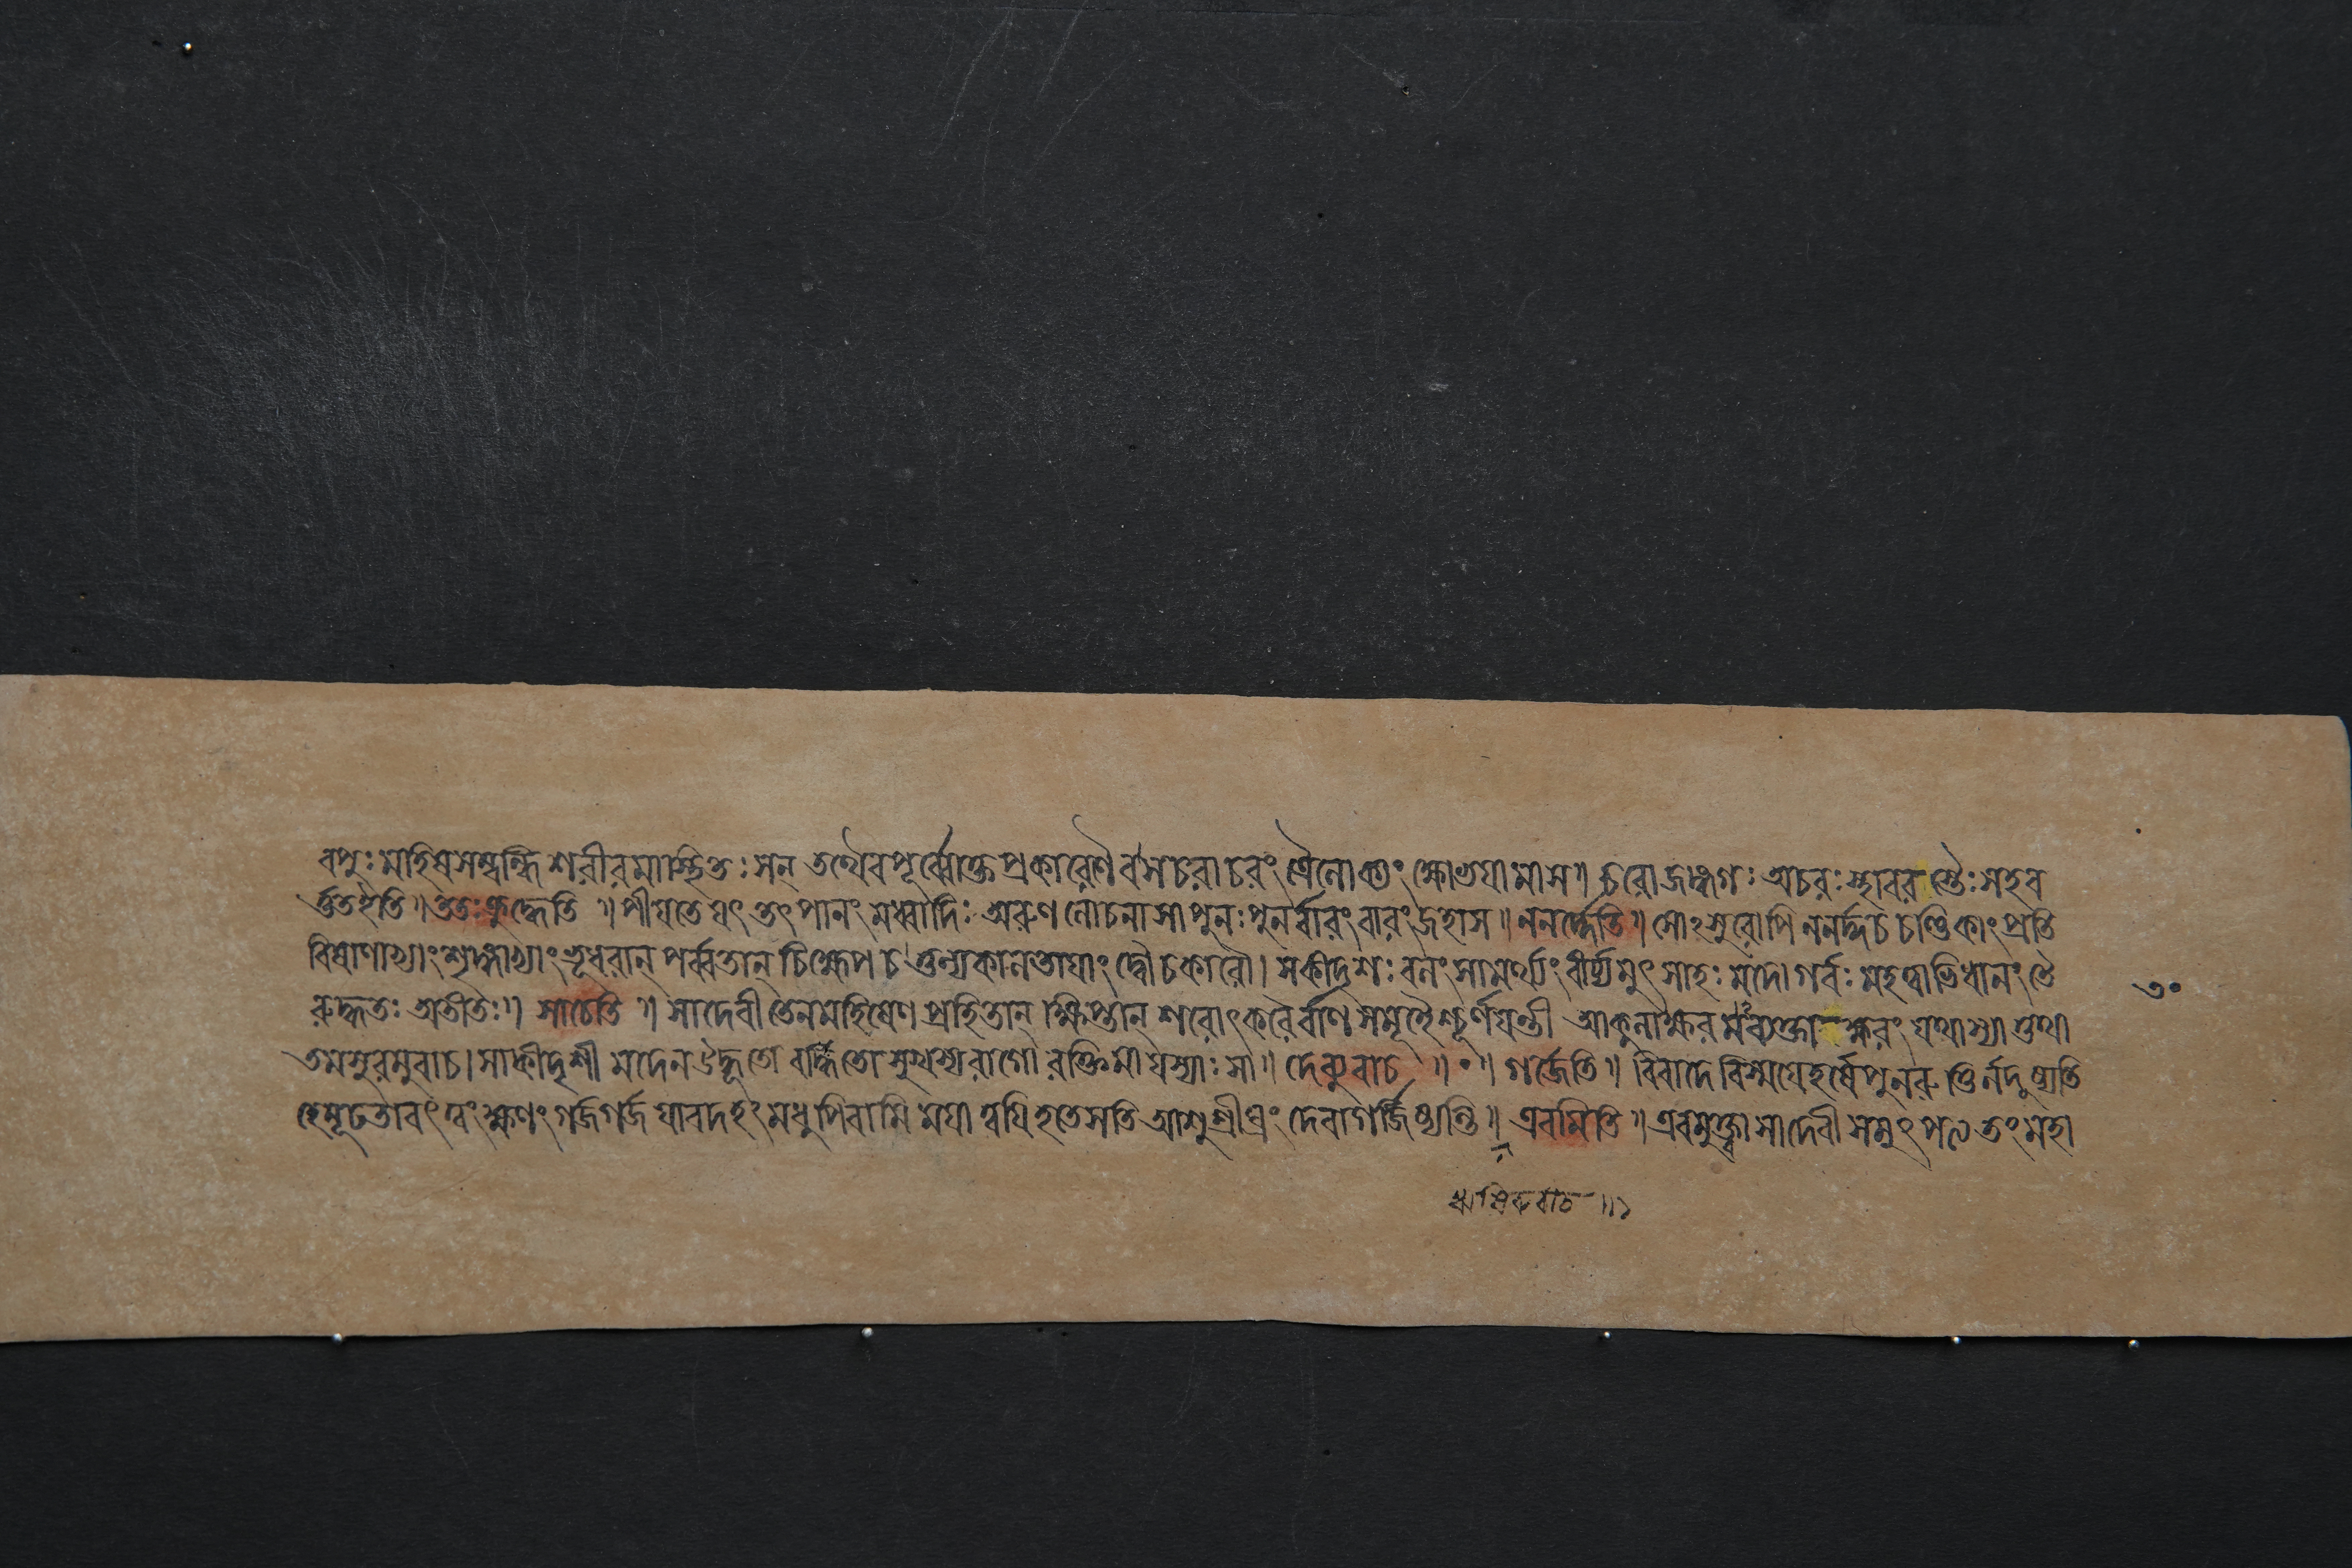 বপুঃ মাহিষসম্বন্ধি শরীরমাস্থিতঃ সন্ তথৈবপূর্ব্বোক্তপ্রকারেণৈব সচরাচরং ত্রৈলোক্যং ক্ষোভযামাস॥ চরোজঙ্গমঃ অচরঃ স্থাবর স্তৈঃ সহব
র্ত্ততইতি॥ ততঃ ক্রুদ্ধেতি ॥ পীযতে যৎ তৎ পানং মধ্বাদিঃ অরুণ লোচনা সা পুনঃ পুনর্ব্বারং বারং জহাস॥ ননর্দ্দেতি॥ সোঽসুরোপি ননর্দ্দ চ চণ্ডিকাং প্রতি
বিষাণাভ্যাং শৃঙ্গাভ্যাং ভূধরান্ পর্ব্বতান্ চিক্ষেপ চ তুল্যকালতাযাং দ্বৌ চকারৌ। সকীদৃশঃ বলং সামর্থ্যং বীর্য্যমুৎসাহঃ মদো গর্ব্বঃ মহত্বাভিধানং তৈ
রুদ্ধতঃ অভীতঃ॥ সাচেতি ॥ সা দেবী তেন মহিষেণ প্রহিতান্ ক্ষিপ্তান্ শরোৎকরৈর্বাণসমূহৈশ্চূর্ণযন্তী আকুলাক্ষরমব্যক্তাক্ষরং যথাস্যাত্তথা
তমসুরমুবাচ। সা কীদৃশী মদেন উদ্ধূতো বর্দ্ধিতো মুখস্য রাগো রক্তিমা যস্যাঃ সা॥ দেব্যুবাচ ॥ ০॥ গর্জ্জেতি॥ বিবাদে বিস্ময়ে হর্ষে পুনরুক্তির্নদুষ্যতি
হেমূঢ তাবৎ ত্বং ক্ষণং গর্জ গর্জ যাবদহং মধু পিবামি মযা ত্বযি হতে সতি আশু শীঘ্রং দেবা গর্জ্জিষ্যন্তি॥ এবমিতি॥ এবমুক্ত্বা সা দেবী সমুৎপত্য তং মহা
৩০
ঋষিরুবাচ॥